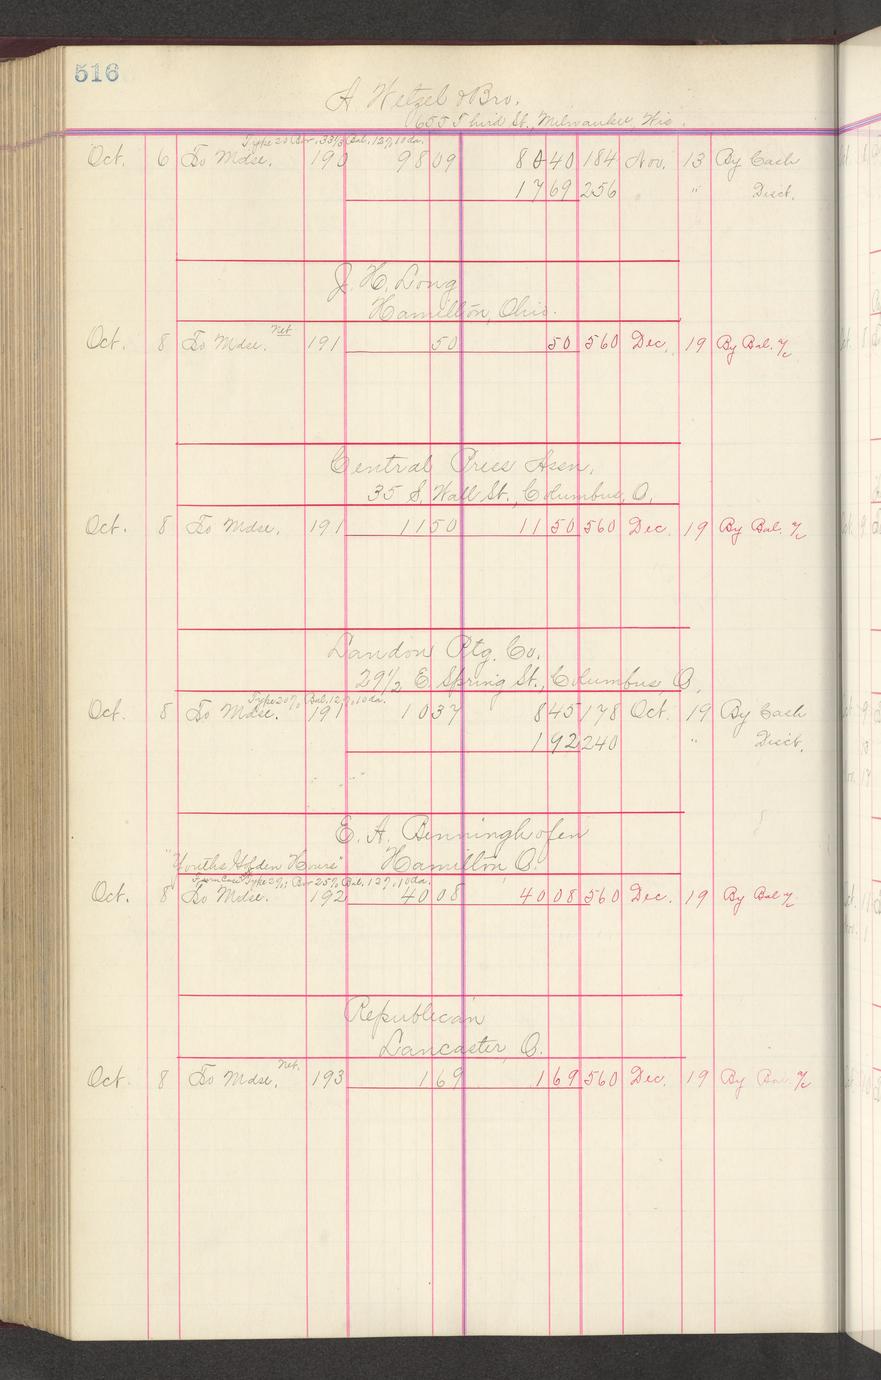 516
A. Wetzel & Bro.
655 Third St., Milwaukee, Wis.
Type 20 Bor. 33 1/3 Bal. 12% 10 da.
Oct. 6 To Mdse. 190 98 09 80 40 184 Nov. 13 By Cash
17 69 256 " Disct.
J. H. Long
Hamilton, Ohio.
Net
Oct. 8 To Mdse. 191 50 50 560 Dec. 19 By Bal. %
Central Press Assn.
35 S. Wall St., Columbus, O.
Oct. 8 To Mdse. 191 11 50 11 50 560 Dec. 19 By Bal. %
Landon Ptg. Co.
29 1/2 E. Spring St., Columbus, O.
Type 20% Bal. 12% 10 da.
Oct. 8 To Mdse. 191 10 37 8 45 178 Oct. 19 By Cash
1 92 240 " Disct.
E. A. Benninghofen
"Youths Golden Hours" Hamilton O.
Type 2%; Bor 25% Bal. 12% 10 da.
Oct. 8 To Mdse. 192 40 08 40 08 560 Dec. 19 By Bal %
Republican
Lancaster, O.
Net.
Oct. 8 To Mdse. 193 1 69 1 69 560 Dec. 19 By Bal. %